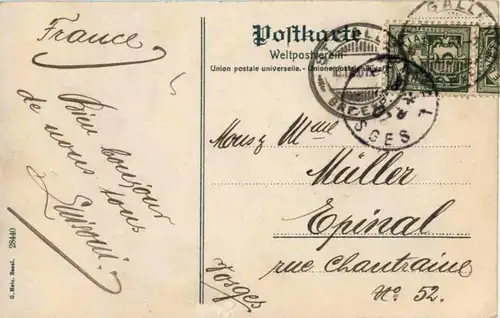 France
Postkarte
Weltpostverein
Union postale universelle. - Unione postale
Bien bonjour
de nous tous
Monsz Mme
Müller
Epinal
rue Chantraine
No. 52.
Vosges
28440
G. Metz, Basel.
ST. GALLEN
GALL
SGES